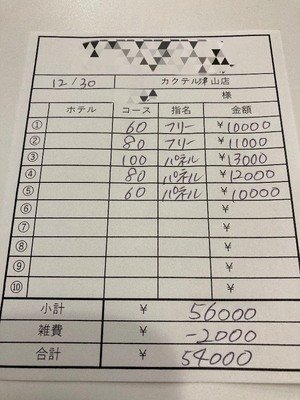 12/30 カクテル津山店
様
ホテル コース 指名 金額
① 60 フリー ¥10000
② 80 フリー ¥11000
③ 100 パネル ¥13000
④ 80 パネル ¥12000
⑤ 60 パネル ¥10000
⑥ ¥
⑦ ¥
⑧ ¥
⑨ ¥
⑩ ¥
小計 ¥ 56000
雑費 ¥ -2000
合計 ¥ 54000